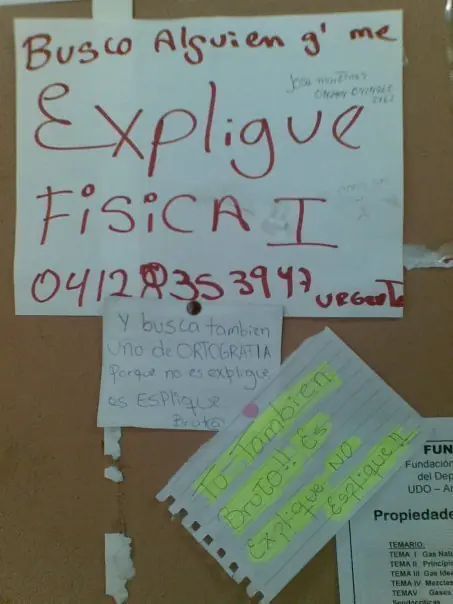 Busco Alguien q' me
Explique
FisicA I
0412 8353947 URgente
Y busca tambien
uno de ORTOGRAFIA
porque no es explique
es ESPlique
Bruto
Tu Tambien
BRUTO!! Es
Explique NO
Esplique!!
FUN
Fundación
del Dep
UDO – A
Propiedade
TEMARIO:
TEMA I Gas Natu
TEMA II Principio
TEMA III Gas Idea
TEMA IV Mezclas
TEMA V Gases